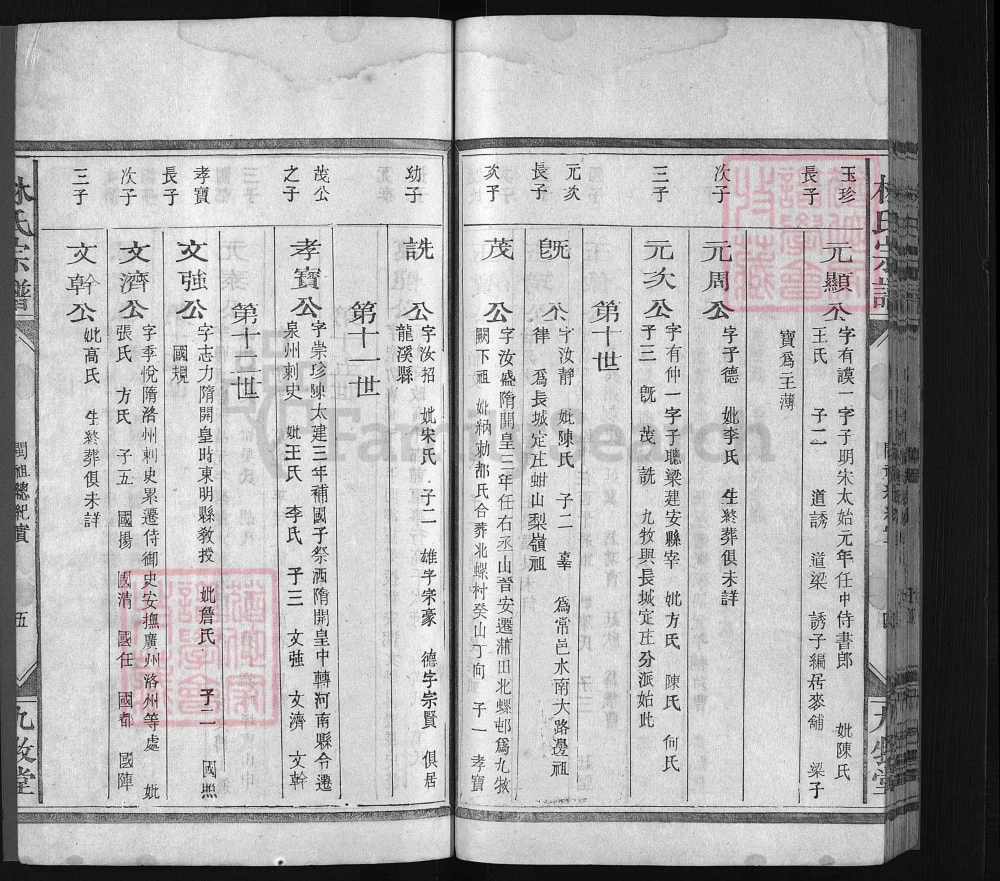 玉珍長子
元顯公
字有謨一字子明宋太始元年任中侍書郎 妣陳氏
王氏 子二 道誘 道梁 誘子編居麥舖 梁子
寶爲王薄
次子
元周公
字子德 妣李氏 生終葬俱未詳
三子
元次公
字有仲一字子聰梁建安縣宰 妣方氏 陳氏 何氏
子三 旣 茂 詵 九牧與長城定庄分派始此
第十世
元次長子
旣 公
字汝靜 妣陳氏 子二 爲常邑水南大路邊祖
律 爲長城定庄蚶山梨嶺祖
次子
茂 公
字汝盛隋開皇三年任右丞山晉安遷蒲田北螺邨爲九牧
闕下祖 妣納勅都氏合葬北螺村癸山丁向 子一 孝寶
幼子
詵 公
字汝招 妣宋氏 子二 雄字崇豪 德字宗賢 俱居
龍溪縣
第十一世
茂公之子
孝寶公
字崇珍陳太建三年補國子祭酒隋開皇中轉河南縣令遷
泉州刺史 妣王氏 李氏 子三 文強 文濟 文幹
第十二世
孝寶長子
文強公
字志力隋開皇時東明縣敎授 妣詹氏 子二 國熙
國規
次子
文濟公
字季悅隋洛州刺史累遷侍御史安撫廣州洛州等處 妣
張氏 方氏 子五 國揚 國清 國任 國都 國陣
三子
文幹公
妣高氏 生終葬俱未詳
林氏宗譜
閩祖總紀實
五
九牧堂
FamilySearch